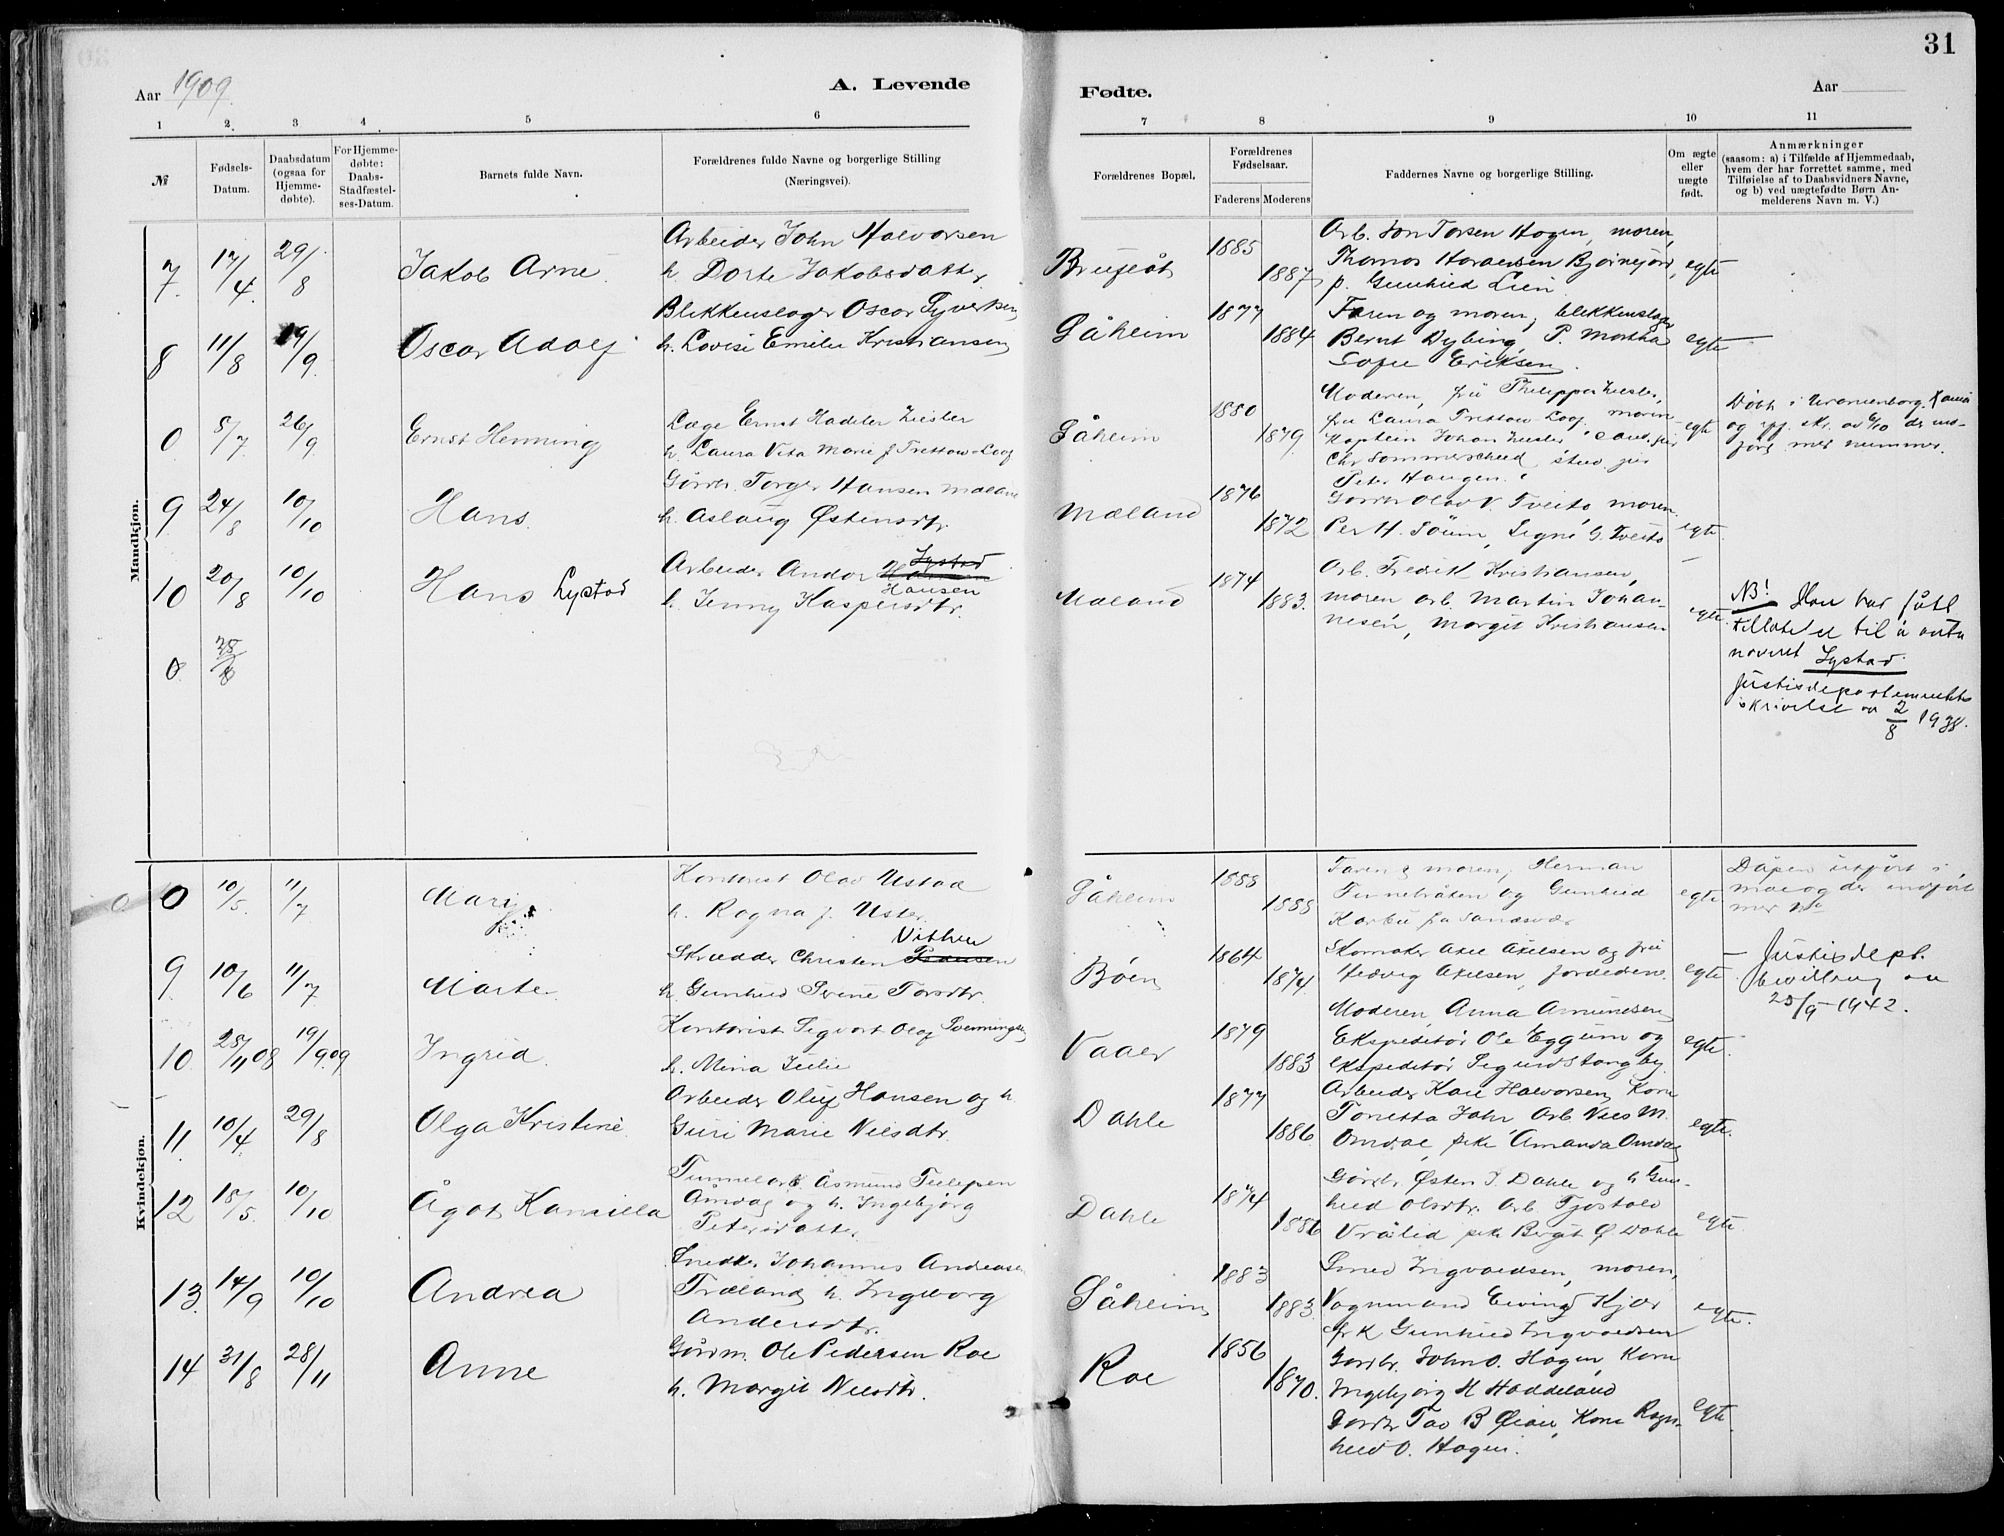 31
Aar 1909.
A. Levende
Fødte.
Aar
1 2. 3 4 5 6
7 8 9 10 11
№
Fødsels-Datum.
Daabsdatum (ogsaa for Hjemmedøbte).
For Hjemmedøbte: Daabs-Stadfæstelses-Datum.
Barnets fulde Navn.
Forældrenes fulde Navne og borgerlige Stilling
(Næringsvei).
Forældrenes Bopæl.
Forældrenes Fødselsaar.
Faderens Moderens
Faddernes Navne og borgerlige Stilling.
Om ægte eller uægte født.
Anmærkninger
(saasom: a) i Tilfælde af Hjemmedaab, hvem der har forrettet samme, med Tilføielse af to Daabsvidners Navne, og b) ved uægtefødte Børn Anmelderens Navn m. V.)
Mandkjøn.
7. 17/4. 29/8 Jakob Arne
Arbeider John Halvorsen
h. Dorte Jakobsdatter
1885 1887
Arb. Jon Torsen Hagen, moren,
p. Gunhild Lien
egte
8 11/8 19/9. Oscar Adolf
Blikkenslager Oscar
h. Lovise Emilie Kristiansen
Såheim 1877 1884
Faren og moren, blikkenslager
Bernt Dybing, P. Martha
Sofie Eriksen.
egte
0 5/7 26/9. Ernst Henning
Læge Ernst
h. Laura Vita Marie f Trettow-Loof
Såheim 1880 1879
Moderen, fru
fru Laura Trettow Loof, moren
Kaptein Johan
Chr Sommerscheld stud. jur
Peter Haugen.
egte
9. 24/8 10/10 Hans.
Gårdbr. Torger Hansen Mæland
h. Aslaug Østensdtr.
Mæland 1876 1872
Gårdbr Olav V. Tveito moren.
Per H. Söum, Signe G. Tveito
egte.
10 20/8 10/10 Hans Lystad
Arbeider Andor Hansen
h. Jenny Kaspersdtr.
Mæland 1874 1883.
Arb. Fredrik Kristiansen,
moren arb. Martin Johannesen, Margit Kristiansen
egte.
NB! Han har fått
tillatelse til å anta
navnet Lystad
Justisdepartementets
skrivelse av 2/8 1938.
0.
Kvindekjøn.
0 10/5. 11/7 Mari
Kontorist Olav Ustad
h. Ragna f. Uster.
Såheim 1888 1888
Faren & moren, Herman
Tinnebråten og Gunhild
egte
Dåpen utført i
Mæl og der indført
med No
9. 10/6 11/7 Marte
Skrædder Christen
h. Gunhild Serine Torsdtr.
Bøen 1864 1874.
Skomaker Axel Axelsen og fru
Hedvig Axelsen, foreldrene.
egte
Justisdept.
bevilling av
25/9-1942.
10 25/11 08 19/9 09 Ingrid.
Kontorist Sigvart Olaf Svenningsen
h. Mina Julie
Vaaer 1879 1883
Moderen, Anna Amundsen
Ekspeditør Ole Eggum og
ekspeditør Sigurd Stangby.
egte.
11. 10/4. 29/8 Olga Kristine.
Arbeider Oluf Hansen og h.
Guri Marie Nilsdtr.
Dahle 1877 1886
Arbeider Kare Halvorsen, Kone
Tonetta Jahr Arb Nils M.
Omdal, pike Amanda Omdal
egte.
12 15/5. 10/10 Ågot Kamilla
Tunnelarb. Åsmund Tellefsen
Åmdal og h. Ingebjørg
Petersdatter
Dahle 1874 1886
Gårdbr. Østen J. Dahle og h Gunhild Olsdtr. Arb. Tjostolv
Vrålid pike Bergit Ø. Dahle
egte.
13. 14/9 10/10 Andrea
Snedker Johannes Andreasen
Træland h. Ingeborg
Andersdtr.
Såheim 1883 1883
Smed Ingvaldsen, moren,
Vognmand Eivind Kjær
frk Gunhild Ingvaldsen
egte.
14 31/8 28/11 Anne
Gårdm. Ole Pedersen Roe
h. Margit Nilsdtr.
Roe 1856 1870.
Gårdbr. John O. Hagen, Kone
Ingebjørg H Haddeland
Gårdbr Tov B Øiar, Kone Ragnhild O. Hagen.
egte.